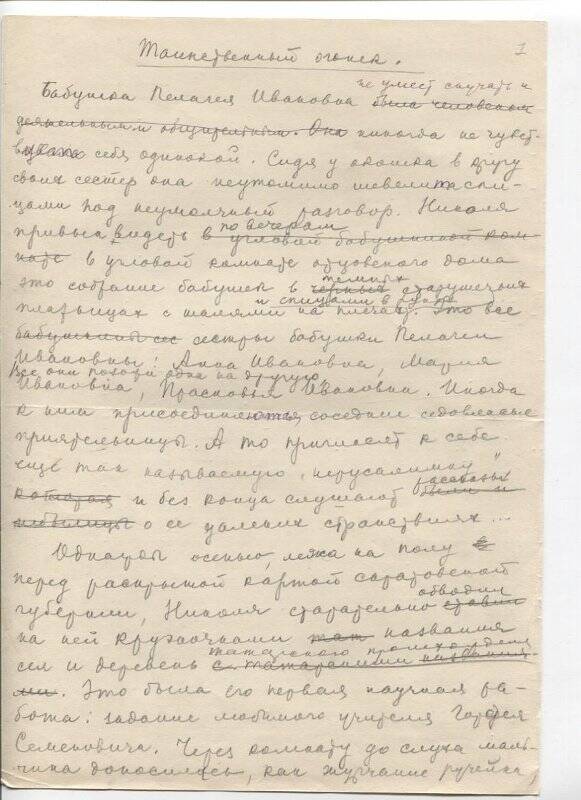 1
Таинственный огонек.
не умеет скучать и
Бабушка Пелагея Ивановна была человеком
деятельным и общительным. Она никогда не чувст-
вовала себя одинокой. Сидя у окошка в кругу
своих сестер она неутомимо шевелит спи-
цами под неумолчный разговор. Николя
по вечерам
привык видеть в угловой бабушкиной ком-
нате в угловой комнате отцовского дома
темных
это собрание бабушек в черных старушечьих
и спицами в руках
платьицах с шалями на плечах. Это все
бабушкины сес сестры бабушки Пелагеи
Ивановны: Анна Ивановна, Мария
Все они похожи одна на другую.
Ивановна, Прасковья Ивановна. Иногда
к ним присоединяются соседние седовласые
приятельницы. А то пригласят к себе
еще так называемую „иерусалимку"
рассказы
которая и без конца слушают были и
небылицы о ее дальних странствиях...
Однажды осенью, лежа на полу
перед раскрытой картой саратовской
обводил
губернии, Николя старательно ставил
на ней кружочками названия
татарского происхожден
сел и деревень с татарскими названия-
ми. Это была его первая научная ра-
бота: задание любимого учителя Гордея
Семеновича. Через комнату до слуха маль-
чика доносилось, как журчание ручейка,